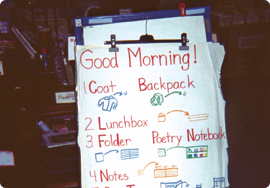 Good Morning!
1. Coat Backpack
2. Lunchbox
3 Folder Poetry Notebook
4 Notes